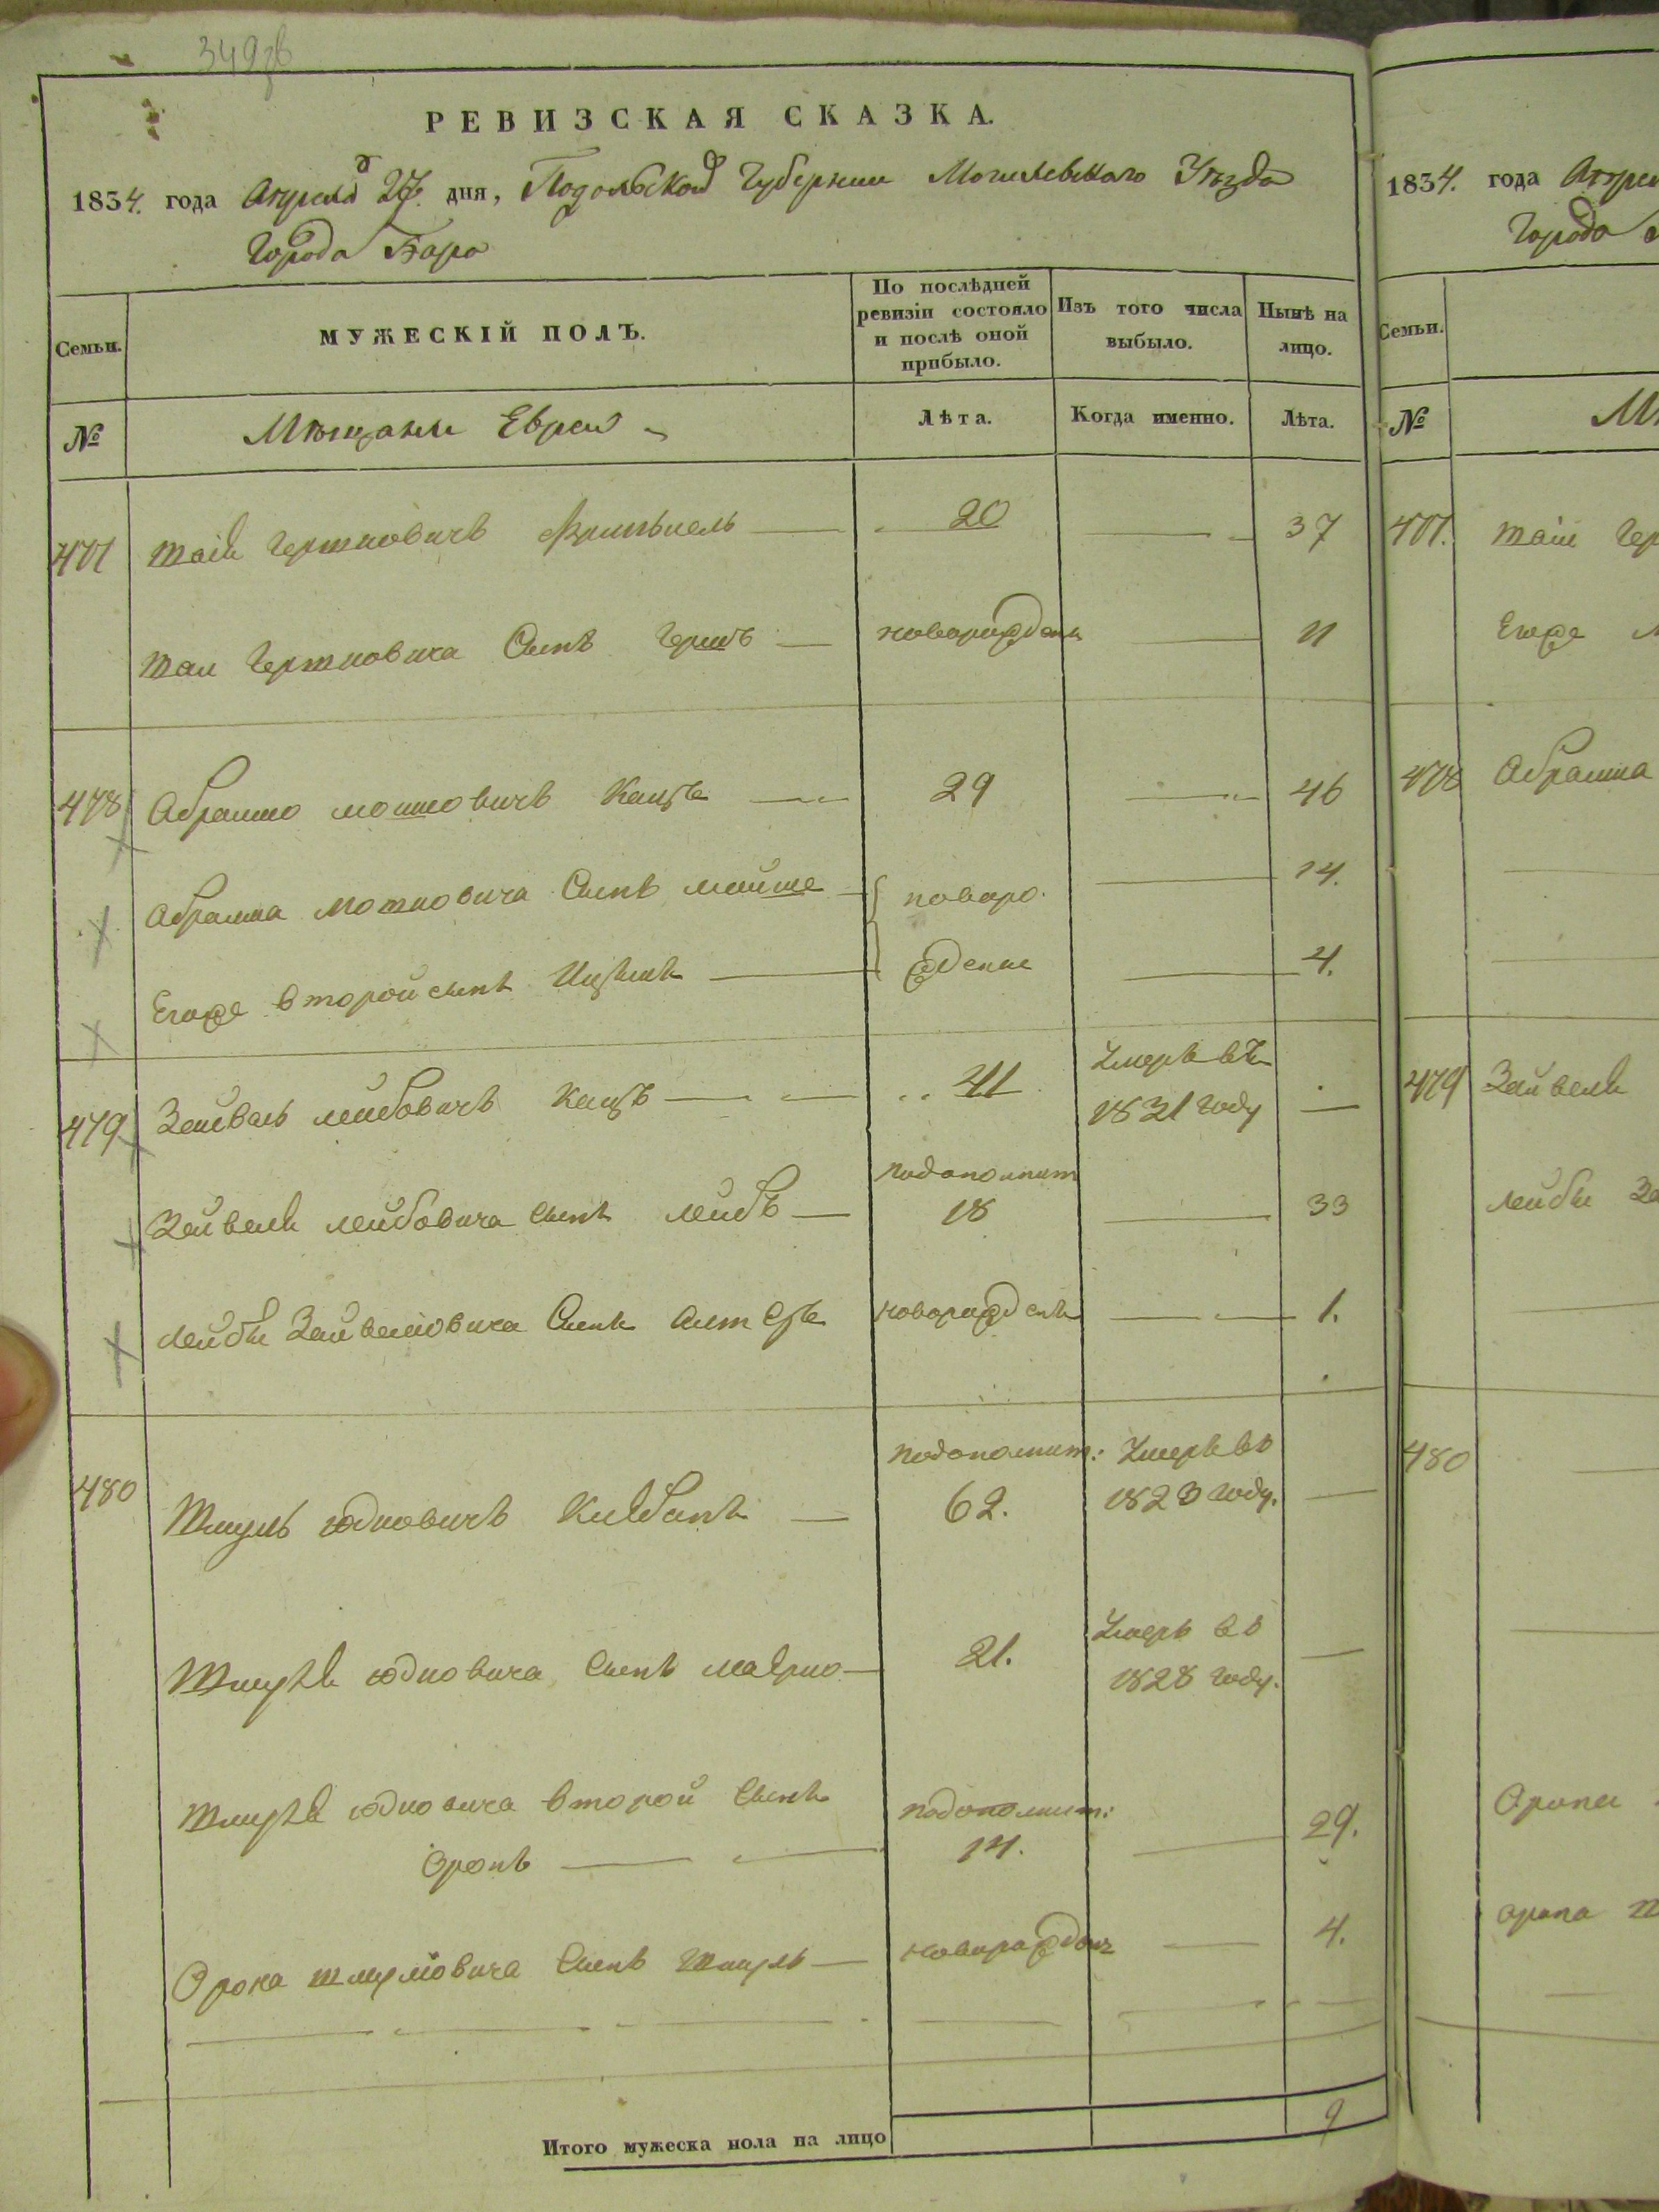 349об
РЕВИЗСКАЯ СКАЗКА.
1834. года Апреля 27. дня, Подольской Губернии Могилевского Уезда
Города Бара
Семьи.
МУЖЕСКІЙ ПОЛЪ.
По послѣдней ревизіи состояло и послѣ оной прибыло.
Изъ того числа выбыло.
Нынѣ на лицо.
№
Мѣщане Евреи
Лѣта.
Когда именно.
Лѣта.
477 Шаія Гершковичъ 20 37
Шаи Гершковича Сынъ Гершъ новорожденъ 11
478 Абрамко Мошковичъ Кацъ 29 46
Абрамка Мошковича Сынъ Мойше новоро 14.
Егоже второй сынъ Ицыкъ жденые 4.
479 Зейвель Лейбовичъ Кацъ 41 Умеръ въ 1831 году —
Зейвеля Лейбовича сынъ Лейбъ подополнит 18 33
Лейбы Зейвелiовича Сынъ Алтеръ новорожденъ 1.
480 Шмуль Юдковичъ подополнит: 62. Умеръ въ 1823 году. —
Шмуля Юдковича Сынъ 21. Умеръ въ 1828 году. —
Шмуля Юдковича второй Сынъ
Оронъ подополнит: 14. 29.
Орона Шмулiовича Сынъ Шмуль новорожден 4.
Итого мужеска пола на лицо 9
1834. года Апрел
Города
Семьи.
№
М
477. Шаiи Гер
Егоже
478 Абрамка
479 Зейвеля
Лейбы За
480
Орона
Орона Ш